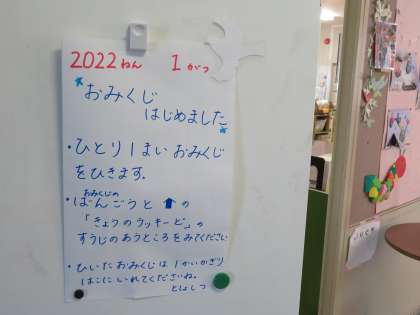 2022ねん 1がつ
おみくじ
はじめました
・ひとり1まい おみくじ
をひきます。
おみくじの
・ばんごうと⬆の
「きょうのラッキーど」の
すうじのあうところをみてください
・ひいたおみくじは 1かいかぎり
はこにいれてくださいね。
としょしつ